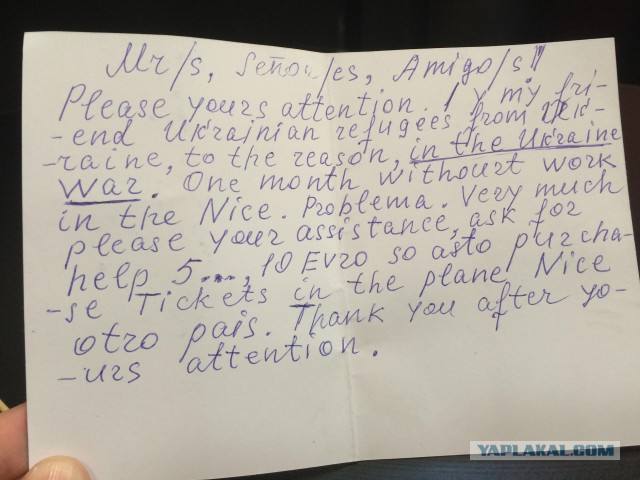 Mr/s, Señor/es, Amigo/s!!!
Please yours attention. I y my fri-
-end Ukrainian refugees from Uk-
-raine, to the reason, in the Ukraine
war. One month withourt work
in the Nice. Problema. Very much
please your assistance, ask for
help 5...., 10 Evro so asto purcha-
-se Tickets in the plane Nice
otro pais. Thank you after yo-
-urs attention.
YAPLAKAL.COM